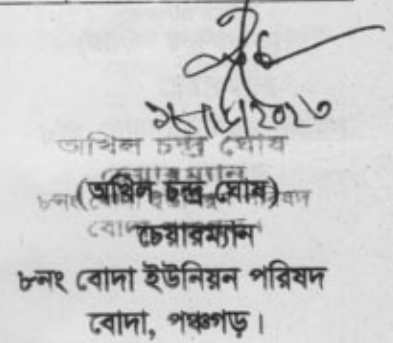 অখিল চন্দ্র ঘোষ
চেয়ারম্যান
(অখিল চন্দ্র ঘোষ)
চেয়ারম্যান
৮নং বোদা ইউনিয়ন পরিষদ
বোদা, পঞ্চগড়।